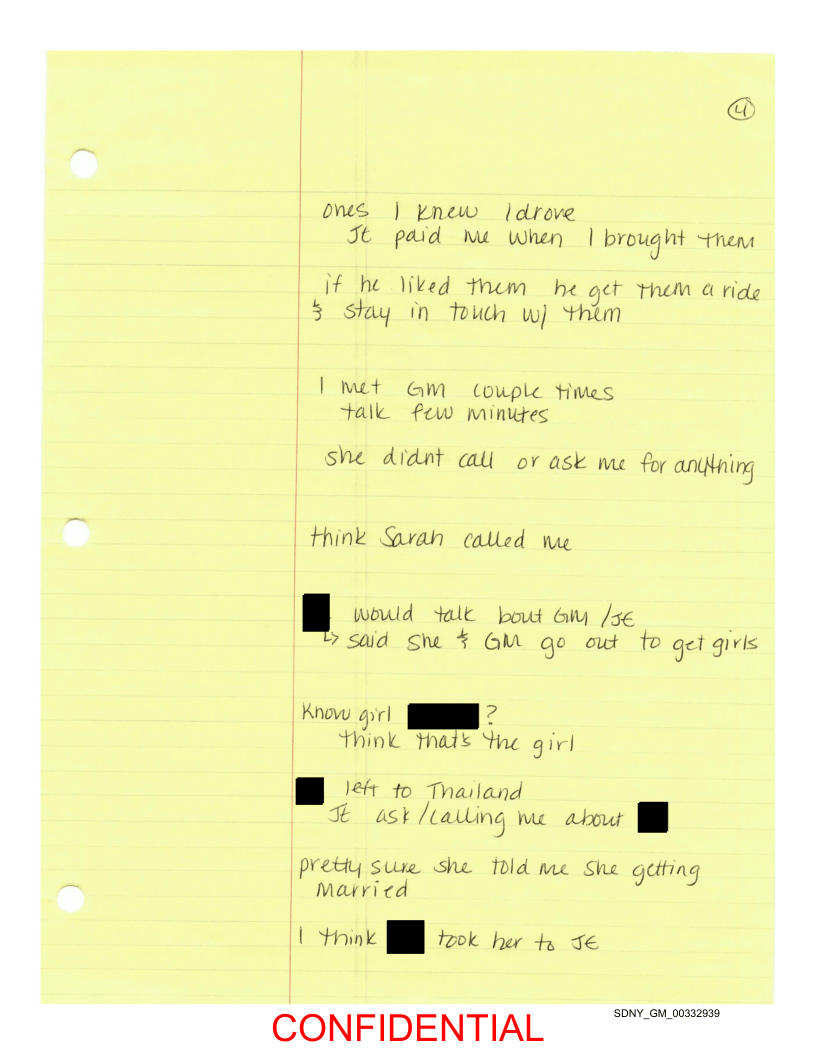 4
ones I knew I drove
JE paid me when I brought them
if he liked them he get them a ride
& stay in touch w/ them
I met GM couple times
talk few minutes
she didnt call or ask me for anything
think Sarah called me
would talk bout GM / JE
↳ said she & GM go out to get girls
Know girl ?
think that's the girl
left to Thailand
JE ask/calling me about
pretty sure she told me she getting
married
I think took her to JE
SDNY_GM_00332939
CONFIDENTIAL